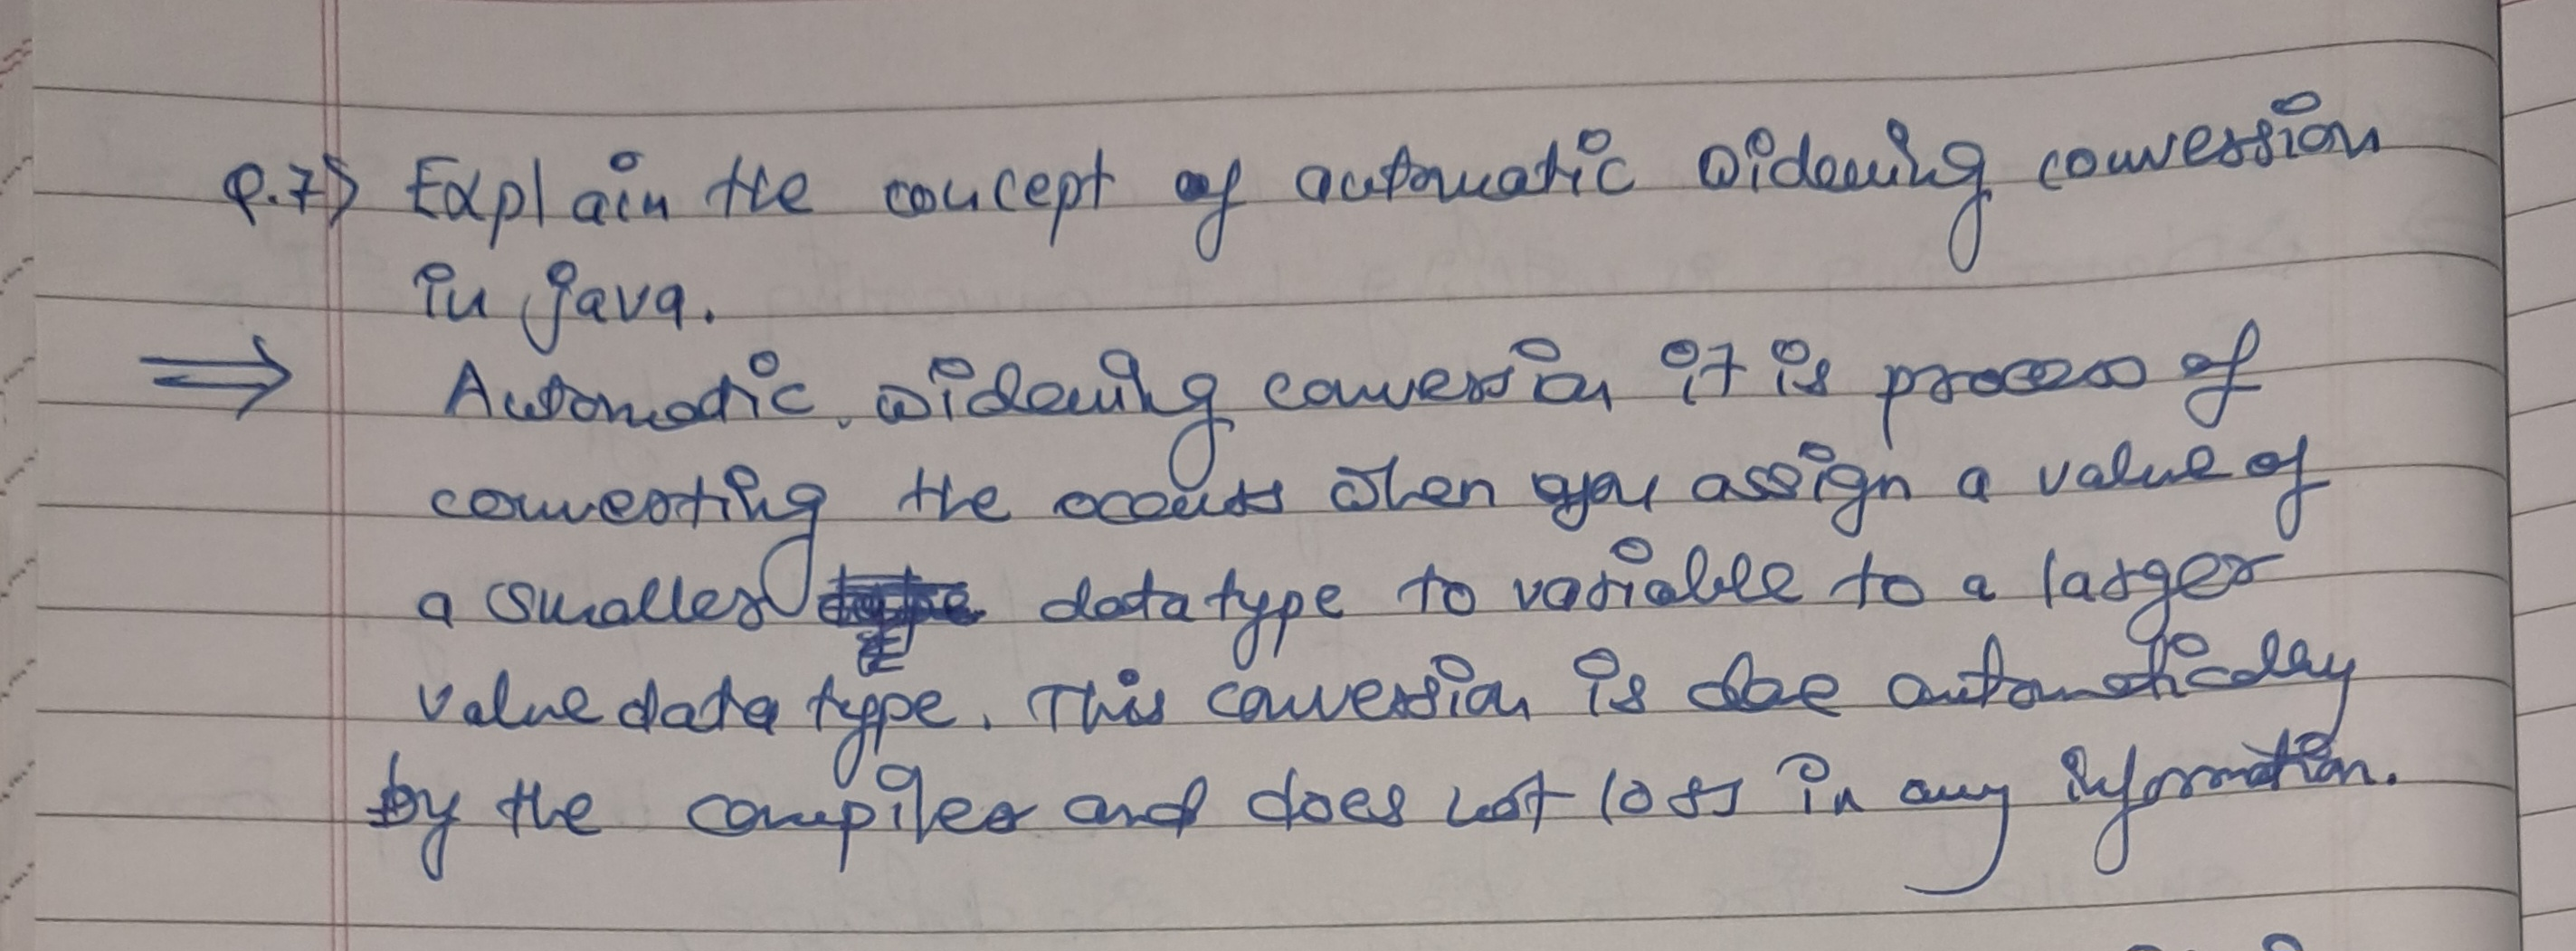 Q.7) Explain the concept of automatic widening conversion
in java.
⇒ Automatic widening conversion it is process of
converting the occurs when you assign a value of
a smaller datatype to variable to a larger
value data type. This conversion is doe automatically
by the compiler and does not loss in any information.